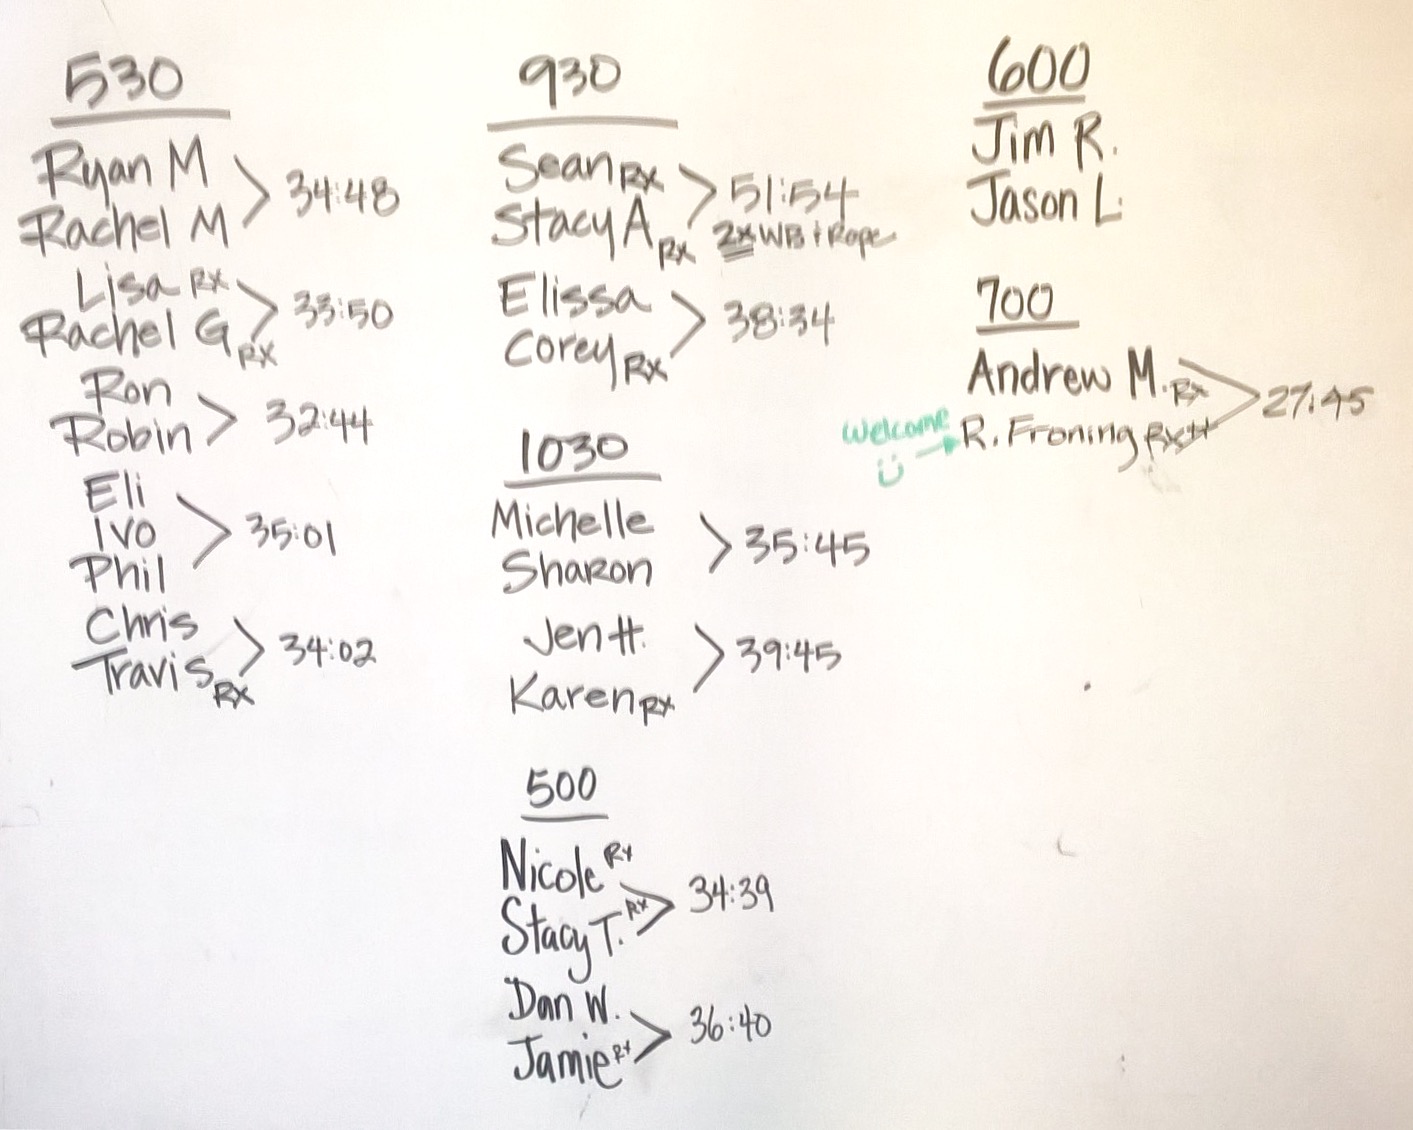 530
Ryan M
Rachel M
34:48
Lisa Rx
Rachel G Rx
33:50
Ron
Robin
32:44
Eli
Ivo
Phil
35:01
Chris
Travis Rx
34:02
930
Sean Rx
Stacy A Rx
51:54
2x WB + Rope
Elissa
Corey Rx
38:34
1030
Michelle
Sharon
35:45
Jen H.
Karen Rx
39:45
500
Nicole Rx
Stacy T. Rx
34:39
Dan W.
Jamie Rx
36:40
600
Jim R.
Jason L.
700
Andrew M. Rx
Welcome
R. Froning Rx++
27:45